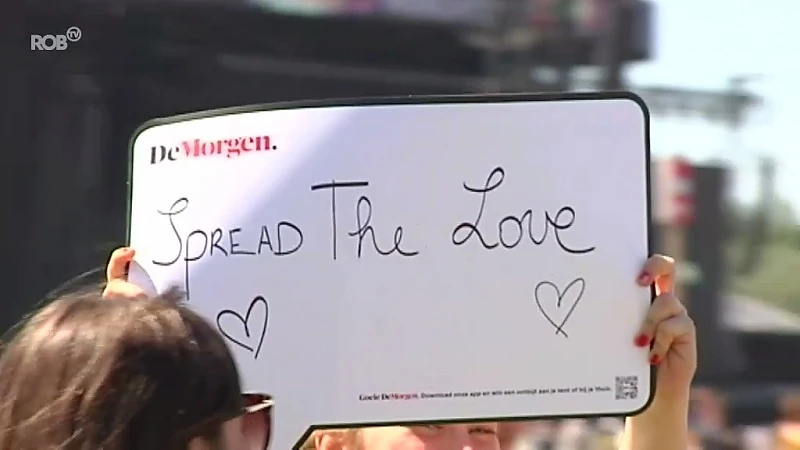 ROBtv
DeMorgen.
Spread The Love
Goeie DeMorgen. Download onze app en win een ontbijt aan je tent of bij je thuis.